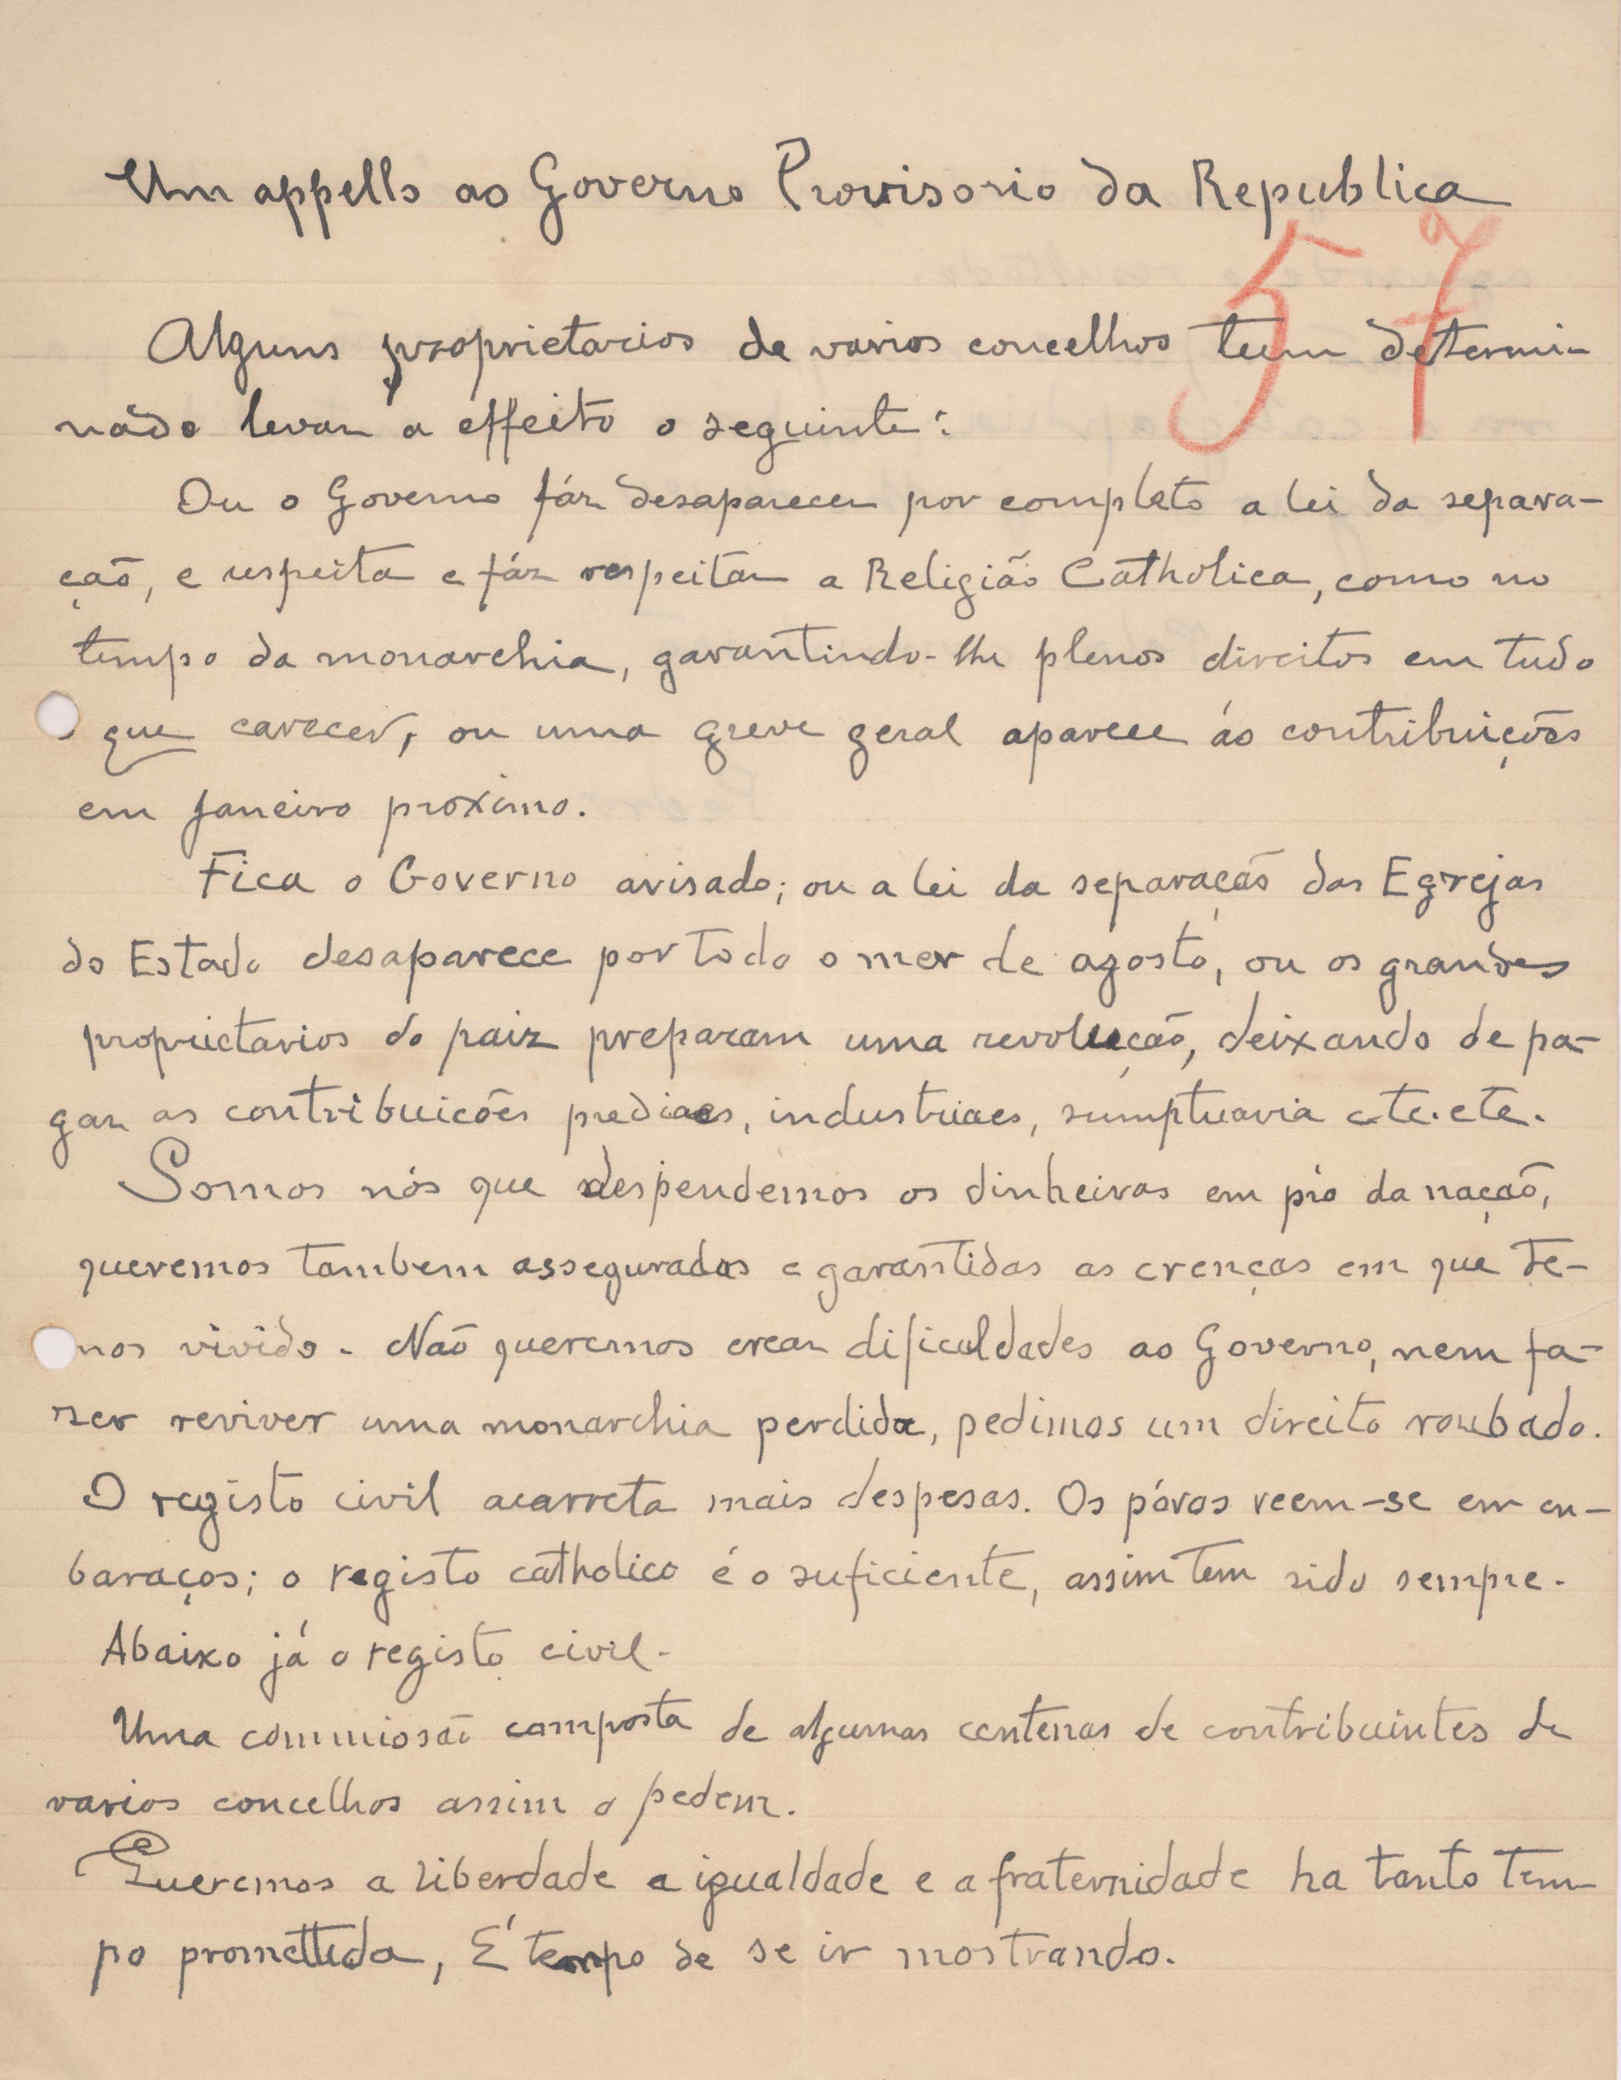 Um appello ao Governo Provisorio da Republica
57
Alguns proprietarios de varios concelhos tem determi-
nado levar a effeito o seguinte:
Ou o Governo fáz desaparecer por completo a lei da separa-
ção, e respeita e fáz respeitar a Religião Catholica, como no
tempo da monarchia, garantindo-lhe plenos direitos em tudo
que carecer, ou uma greve geral aparece ás contribuições
em Janeiro proximo.
Fica o Governo avisado; ou a lei da separação das Egrejas
do Estado desaparece por todo o mez de agosto, ou os grandes
proprietarios do paiz preparam uma revolução, deixando de pa-
gar as contribuicões prediaes, industriaes, sumptuaria etc. etc.
Somos nós que despendemos os dinheiros em pró da nação,
queremos tambem assegurados e garantidas as crenças em que te-
mos vivido. Não queremos crear dificuldades ao Governo, nem fa-
zer reviver uma monarchia perdida, pedimos um direito roubado.
O registo civil acarreta mais despesas. Os póvos veem-se em en-
baraços; o registo catholico é o suficiente, assim tem sido sempre.
Abaixo já o registo civil.
Uma commissão composta de algumas centenas de contribuintes de
varios concelhos assim o pedem.
Queremos a liberdade a igualdade e a fraternidade ha tanto tem
po promettida, É tempo de se ir mostrando.